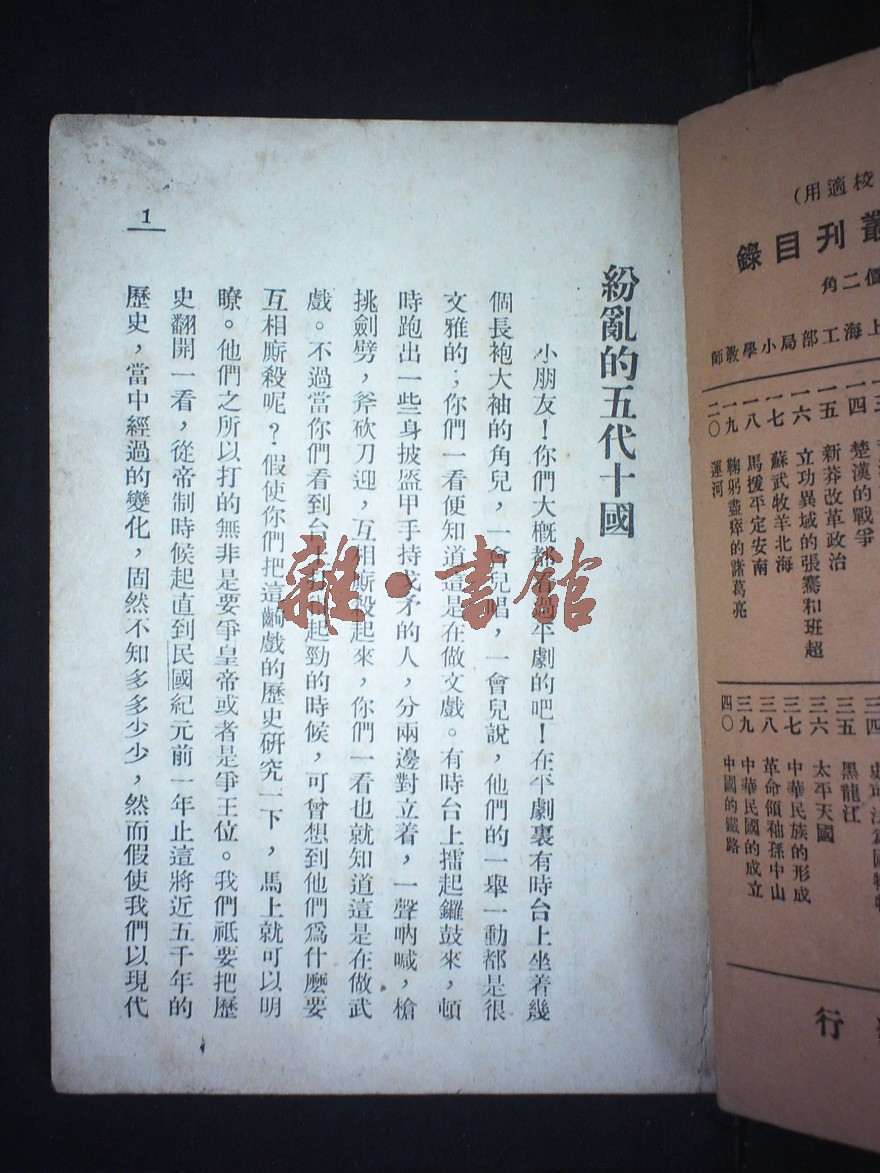 校適用)
叢刊目錄
價二角
上海工部局小學教師
一四 楚漢的戰爭
一五 新莽改革政治
一六 立功異域的張騫和班超
一七 蘇武牧羊北海
一八 馬援平定安南
一九 鞠躬盡瘁的諸葛亮
二〇 運河
三四
三五 黑龍江
三六 太平天國
三七 中華民族的形成
三八 革命領袖孫中山
三九 中華民國的成立
四〇 中國的鐵路
行
紛亂的五代十國
小朋友!你們大概都看過平劇的吧!在平劇裏有時台上坐着幾
個長袍大袖的角兒,一會兒唱,一會兒說,他們的一舉一動都是很
文雅的;你們一看便知道這是在做文戲。有時台上擂起鑼鼓來,頓
時跑出一些身披盔甲手持戈矛的人,分兩邊對立着,一聲吶喊,槍
挑劍劈,斧砍刀迎,互相廝殺起來,你們一看也就知道這是在做武
戲。不過當你們看到台上起勁的時候,可曾想到他們爲什麼要
互相廝殺呢?假使你們把這齣戲的歷史研究一下,馬上就可以明
瞭。他們之所以打的無非是要爭皇帝或者是爭王位。我們祇要把歷
史翻開一看,從帝制時候起直到民國紀元前一年止這將近五千年的
歷史,當中經過的變化,固然不知多多少少,然而假使我們以現代
1
雜·書館